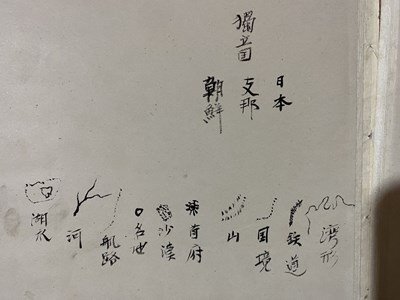 獨立国
日本
支那
朝鮮
灣形
鉄道
国境
山
府
沙漠
航路
河
湖水